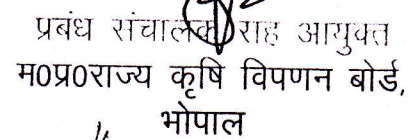 प्रबंध संचालक राह आयुक्त
म0प्र0राज्य कृषि विपणन बोर्ड,
भोपाल